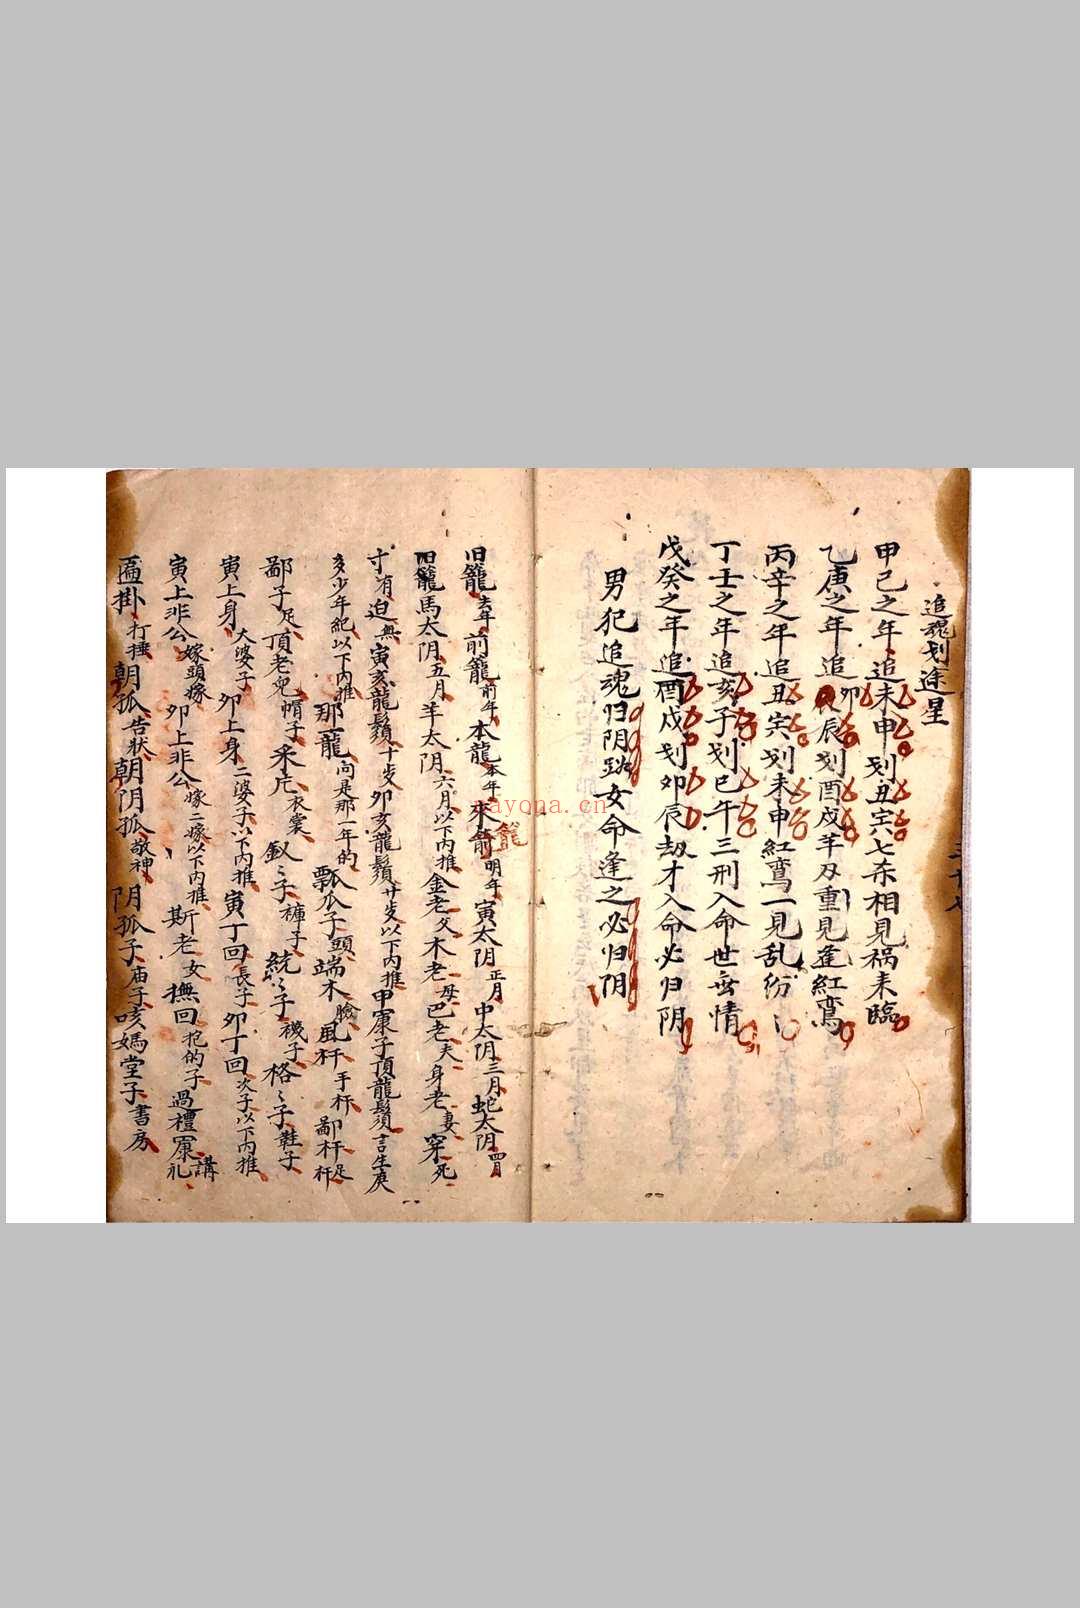 追魂刬途星
甲己之年追未申刬丑寅七杀相見祸来臨
乙庚之年追卯辰刬酉戌羊刃重見逢紅鸾
丙辛之年追丑寅刬未申紅鸾一見乱纷纷
丁壬之年追亥子刬巳午三刑入命世無情
戊癸之年追酉戌刬卯辰劫才入命必归阴
男犯追魂归阴路女命逢之必归阴
旧龍去年前龍前年本龍本年來龍明年寅太阴正月中太阴三月蛇太阴四月
旧龍馬太阴五月羊太阴六月以下内推金老父木老母巴老夫身老妻穿死
寸有迫無寅亥龍鬚十岁卯亥龍鬚廿岁以下内推甲寅子頂龍鬚言生庚
多少年紀以下内推那龍问是那一年的瓢瓜子頭端木臉風杆手杆鄙杆足杆
鄙子足頂老兜帽子釆片衣裳釵々子裤子統々子襪子格々子鞋子
寅上身大婆子卯上身二婆子以下内推寅丁回長子卯丁回次子以下内推
寅上非公嫁頭嫁卯上非公嫁二嫁以下内推斯老女撫回抱的子過禮
匾掛打捶朝孤告狀朝阴孤敬神阴孤子庙子咳媽堂子書房
三十七
rayona.cn